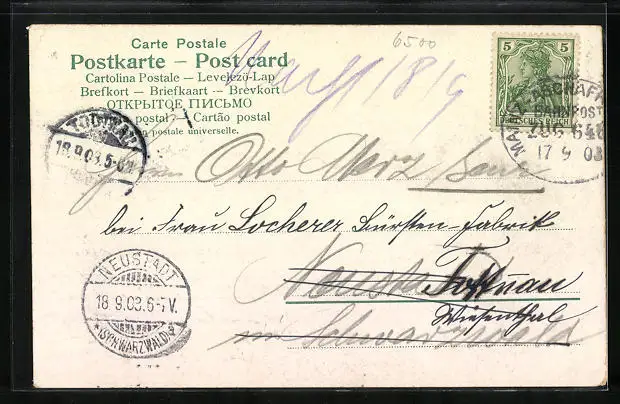 Carte Postale
Postkarte — Post card
Cartolina Postale — Levelező-Lap
Brefkort — Briefkaart — Brevkort
ОТКРЫТОЕ ПИСЬМО
postal — Cartão postal
postale universelle.
6500
18/9
5 5
DEUTSCHES REICH
BAHNPOST
ZUG 640
17 9 03
18.9.03.5-6
Otto Merz
bei Frau Locherer Bürsten-Fabrik
Neustadt Todtnau
Wiesenthal
im Schwarzwald
NEUSTADT
18 9.03.6-7V.
(SCHWARZWALD)